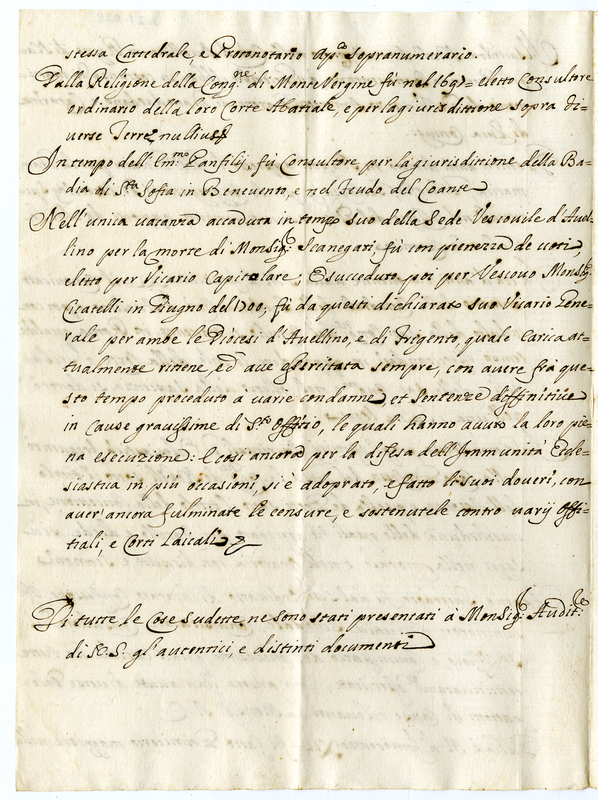 stessa Cattedrale, e Protonotario Ap.co sopranumerario.
Dalla Religione della Cong.ne di MonteVergine fù nel 1697= eletto Consultore
ordinario della loro Corte Abatiale, e per la giurisdittione sopra di=
verse Terre nullius
In tempo dell' Em.mo Panfilij, fù Consultore per la giurisdittione della Ba=
dia di S.ta Sofia in Benevento, e nel feudo del
Nell'unica vacanza accaduta in tempo suo della Sede Vescovile d'Avel=
lino per la morte di Monsig.r Scanegati, fù con pienezza de voti,
eletto per Vicario Capitolare; E succeduto poi per Vescovo Monsig.r
Cicatelli in Giugno del 1700; fù da questi dichiarato suo Vicario Gene=
rale per ambe le Diocesi d'Avellino, e di Frigento, quale Carica at=
tualmente ritiene, ed ave esercitata sempre, con avere frà que=
sto tempo proceduto à varie condanne, et sentenze diffinitive
in Cause gravissime di S.to Offitio, le quali hanno avuto la loro pie=
na esecuzione: E così ancora per la difesa dell'Immunità Eccle=
siastica in più occasioni, si è adoprato, e fatto li suoi doveri, con
aver' ancora fulminate le censure, e sostenutele contro varij Offi=
tiali, e Corti Laicali
Di tutte le Cose sudette ne sono stati presentati à Monsig.r Audit.re
di N.S. gl'autentici, e distinti documenti